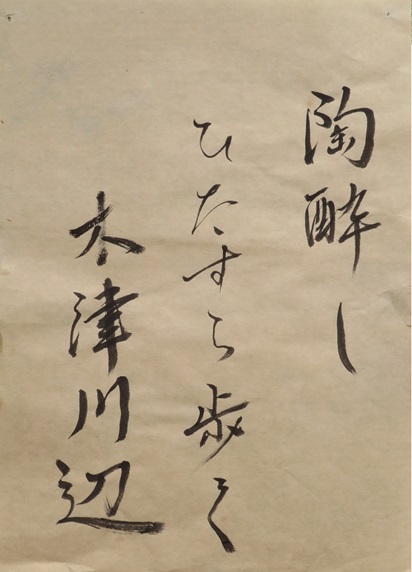 陶酔し
ひたすら歩く
木津川辺